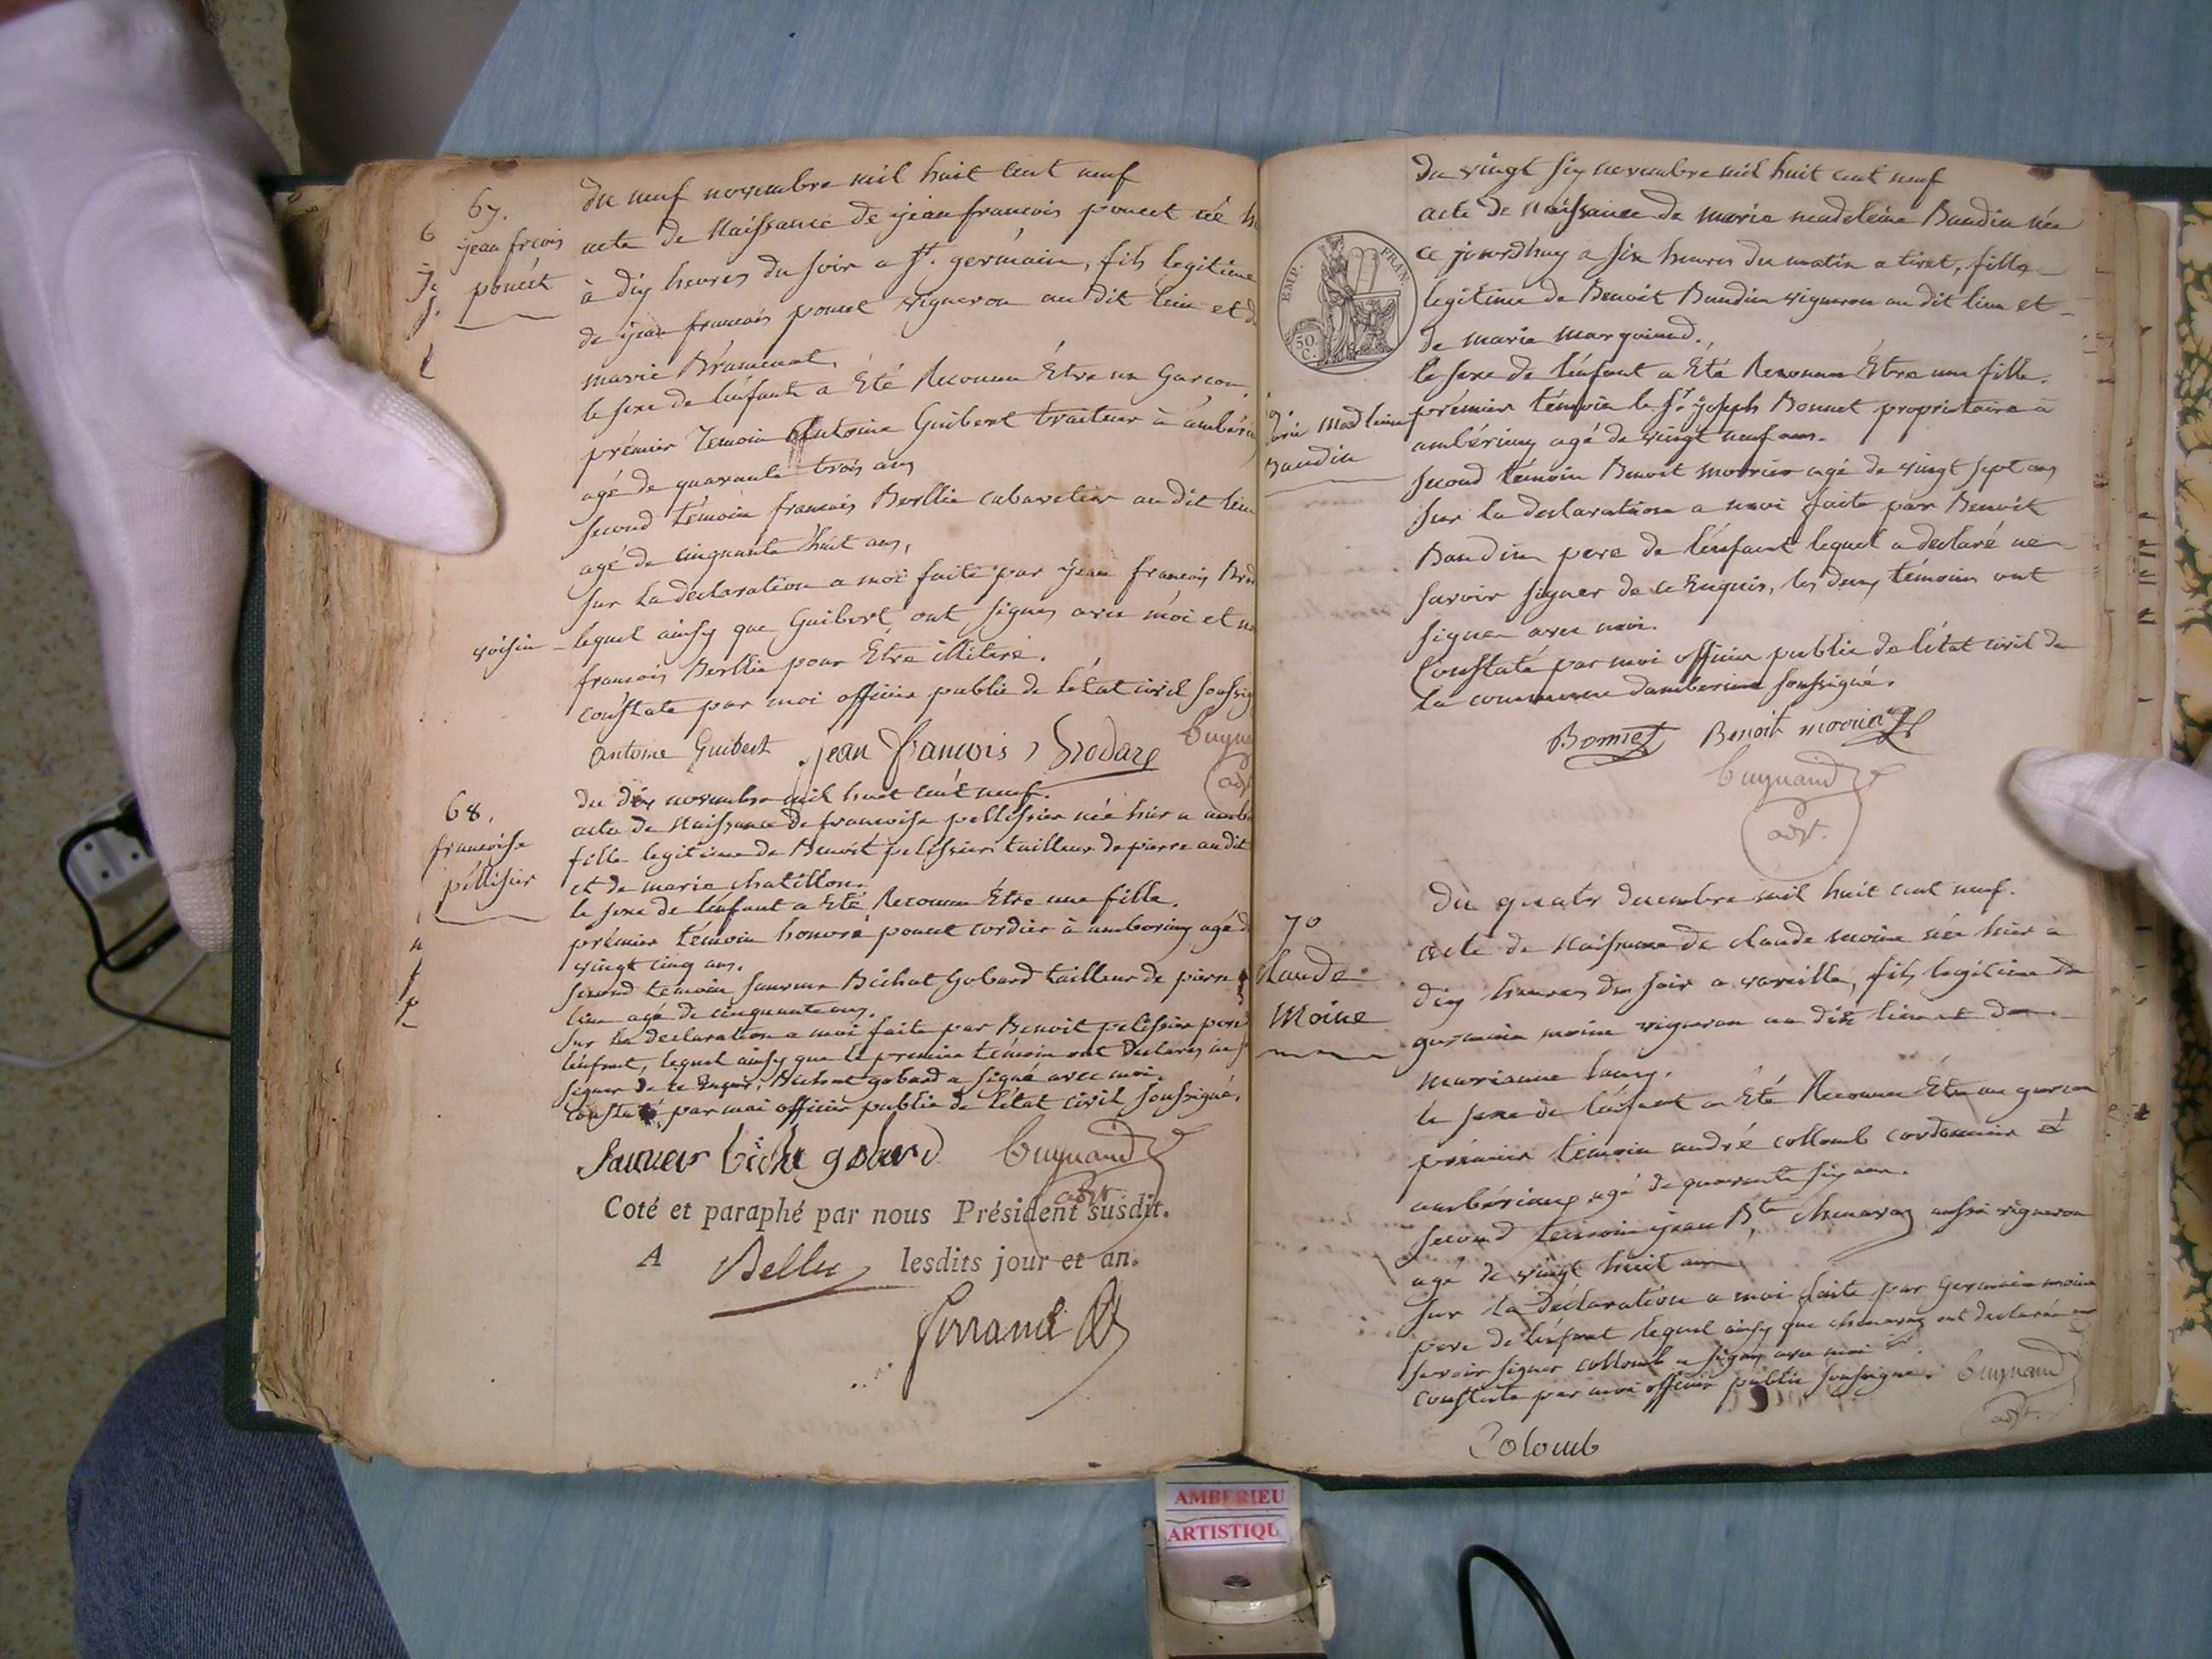 67.
jean frcois
poncet
du neuf novembre mil huit cent neuf
acte de Naissance de jean francois poncet né h
à dix heures du soir a St. germain, fils legitime
de jean francois poncet vigneron au dit lieu et d
marie Bramerat.
le sexe de l'enfant a Eté Reconnu Etre un Garçon.
prémier Temoin Antoine Guibert traiteur à ambéri
agé de quarante trois ans
second témoin francois Berllie cabaretier au dit lieu
agé de cinquante huit ans,
sur la declaration a moi faite par jean francois Bro
voisin - lequel ainsy que Guibert ont signés avec moi et no
francois Berllie pour Etre illiteré.
constaté par moi officier public de l'état civil soussig
antoine Guibert jean francois Brodaz Buyna
adjt
68.
francoise
péllisier
du dix novembre mil huit cent neuf.
acte de Naissance de francoise pellissier née hier a amb
fille legitime de Benoit pelissier tailleur de pierre au dit
et de marie chatillon.
le sexe de l'enfant a Eté Reconnu Etre une fille.
prémier témoin honoré poncet cordier à amberieux agé d
vingt cinq ans.
second temoin sauveur Bichat Gobard tailleur de pierre
lieu agé de cinquante ans.
sur la declaration a moi faite par Benoit pelissier pere d
l'enfant, lequel ainsy que le premier témoin ont declarés ne s
signer de ce Enquis, Bichat gobard a signé avec moi.
constaté par moi officier public de l'état civil soussigné.
Sauveur biche gobard Buynand
adjt
Coté et paraphé par nous Président susdit.
A Belley lesdits jour et an.
Ferrand
EMP. FRAN.
50. C.
marie Madleine
Baudin
du vingt six novembre mil huit cent neuf
acte de Naissance de marie madeleine Baudin née
ce jourdhuy a six heures du matin a tiret, fille
legitime de Benoit Baudin vigneron au dit lieu et
de marie
le sexe de l'enfant a Eté Reconnu Etre une fille.
prémier témoin le Sr. joseph Bonnet propriétaire à
ambérieux agé de vingt neuf ans.
second témoin Benoit Morrier agé de vingt sept ans
sur la declaration a moi faite par Benoit
Baudin pere de l'enfant lequel a declaré ne
savoir signer de ce Enquis, les deux témoins ont
signer avec moi.
Constaté par moi officier public de l'état civil de
la commune damberieux soussigné.
Bonnet Benoit
Buynand
adjt.
70
Claude
Moine
Du quatr decembre mil huit cent neuf.
acte de Naissance de claude moine née hier à
dix heures du soir a vareille, fils legitime de
germain moine vigneron au dit lieu et de
marianne
le sexe de l'enfant a Eté Reconnu Etre un garcon
prémier temoin andré collomb cordonnier à
ambérieux agé de quarante six ans.
second temoin jean Bte. chenavaz aussi vigneron
agé de vingt huit ans
sur la Déclaration a moi faite par Germain moine
pere de l'enfant lequel ainsy que chenavaz ont declarés ne
savoir signer collomb a signé avec moi
constaté par moi officier public soussigné. Buynand
adjt.
Colomb
AMBERIEU
ARTISTIQU